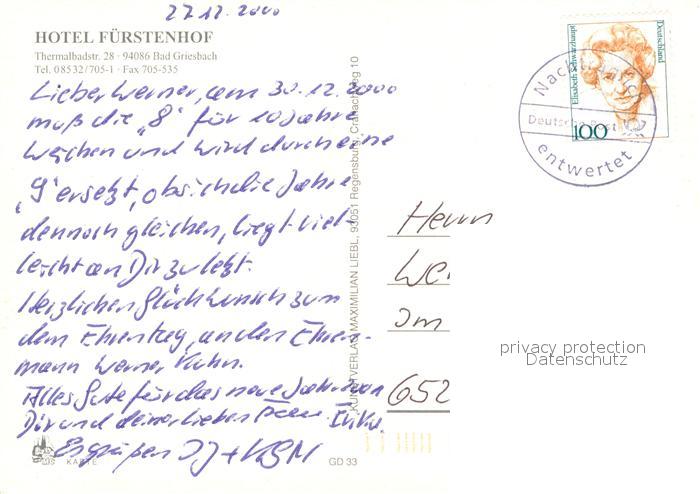 27.12.2000
HOTEL FÜRSTENHOF
Thermalbadstr. 28 · 94086 Bad Griesbach
Tel. 08532/705-1 · Fax 705-535
Lieber Werner, am 30.12.2000
muß die „8" für 10 Jahre
weichen und wird durch eine
„9" ersetzt, ob sich die Jahre
dennoch gleichen, liegt viel-
leicht an Dir zuletzt.
Herzlichen Glückwunsch zum
dem Ehrentag, an den Ehren-
mann Werner Kuhn.
Alles Gute für das neue Jahr
Dir und deiner lieben Frau
Es grüßen
KARTE
GD 33
KUNSTVERLAG MAXIMILIAN LIEBL, 93051 Regensburg, Cranachweg 10
Elisabeth Schwarzhaupt
Deutschland
100
Nachträglich
Deutsche Post
entwertet
Herrn
We
Im
652
privacy protection
Datenschutz